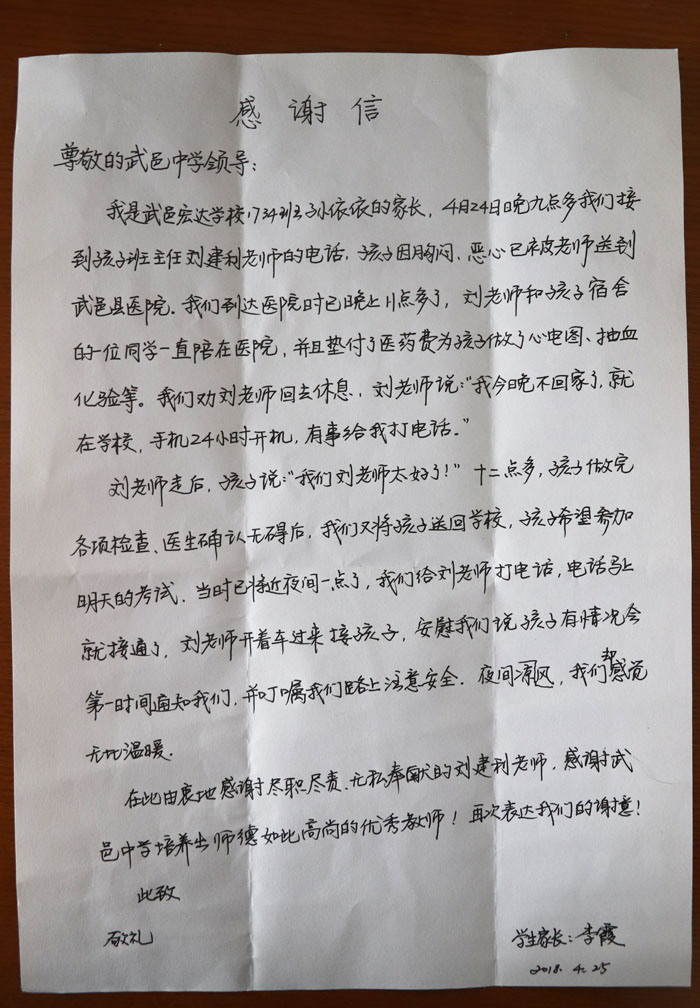 感谢信
尊敬的武邑中学领导：
我是武邑宏达学校1734班孙依依的家长，4月24日晚九点多我们接
到孩子班主任刘建利老师的电话，孩子因胸闷、恶心已被老师送到
武邑县医院。我们到达医院时已晚上11点多了，刘老师和孩子宿舍
的一位同学一直陪在医院，并且垫付了医药费为孩子做了心电图、抽血
化验等。我们劝刘老师回去休息，刘老师说：“我今晚不回家了，就
在学校，手机24小时开机，有事给我打电话。”
刘老师走后，孩子说：“我们刘老师太好了！”十二点多，孩子做完
各项检查、医生确认无碍后，我们又将孩子送回学校，孩子希望参加
明天的考试．当时已将近夜间一点了，我们给刘老师打电话，电话马上
就接通了，刘老师开着车过来接孩子，安慰我们说孩子有情况会
第一时间通知我们，并叮嘱我们路上注意安全．夜间凉风，我们却感觉
无比温暖．
在此由衷地感谢尽职尽责、无私奉献的刘建利老师，感谢武
邑中学培养出师德如此高尚的优秀教师！再次表达我们的谢意！
此致
敬礼
学生家长：李霞
2018. 4. 25